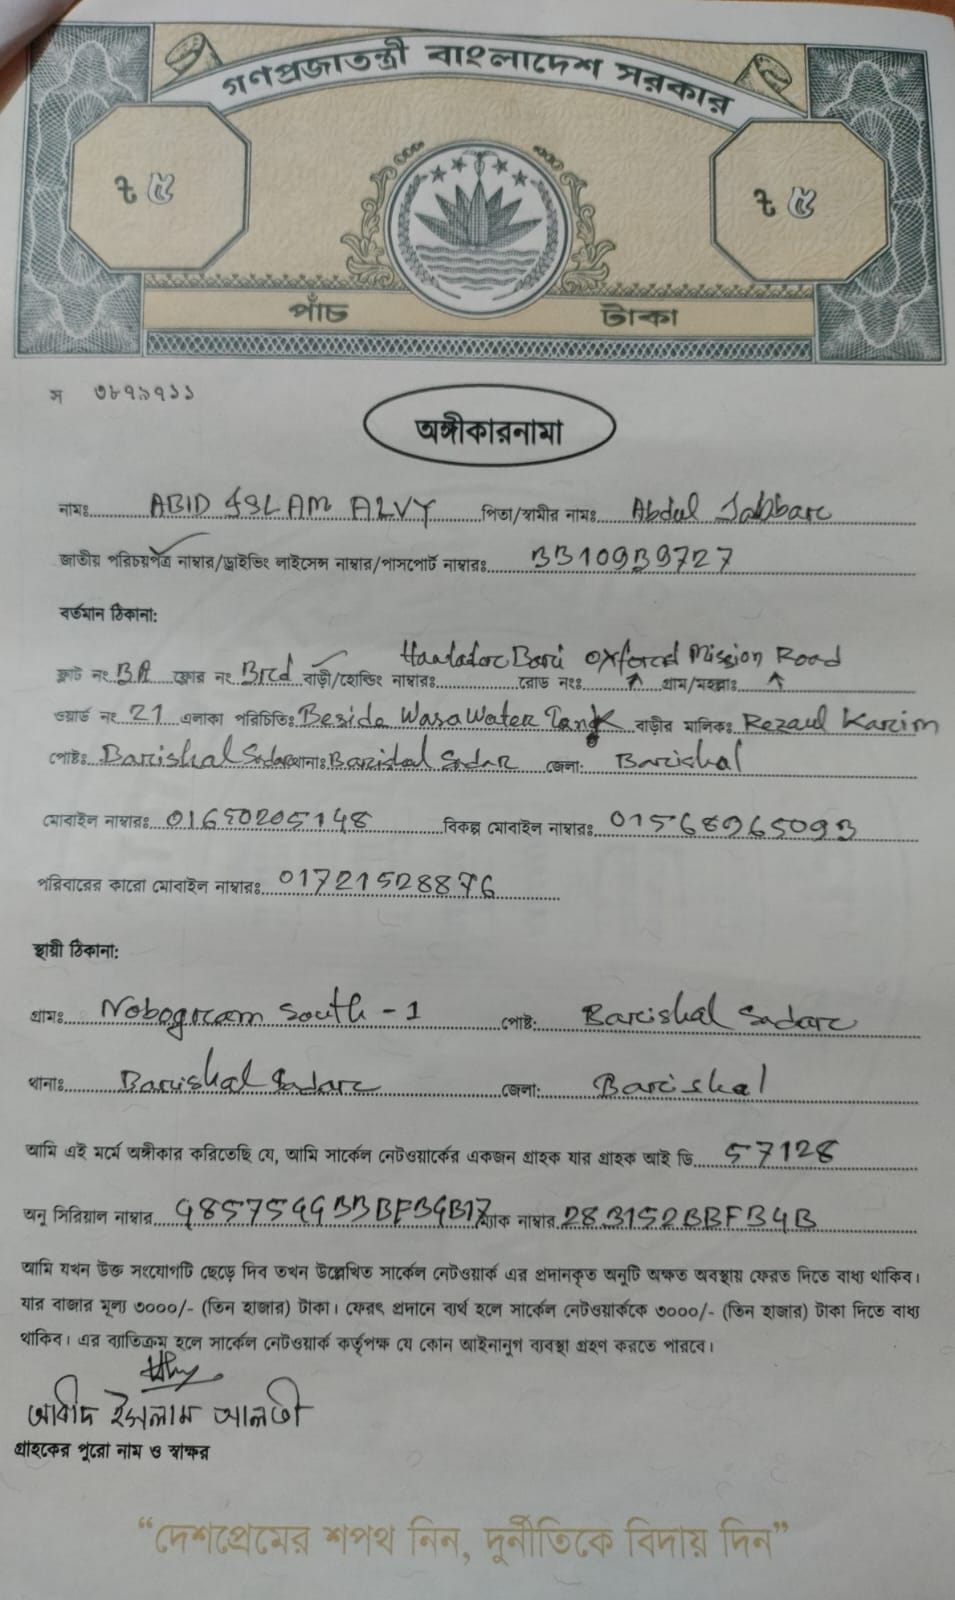 গণপ্রজাতন্ত্রী বাংলাদেশ সরকার
৳ ৫ ৳ ৫
পাঁচ টাকা
স ৩৮৭৯৭১১
অঙ্গীকারনামা
নামঃ ABID ISLAM ALVY পিতা/স্বামীর নামঃ Abdul Jabbar
জাতীয় পরিচয়পত্র নাম্বার/ড্রাইভিং লাইসেন্স নাম্বার/পাসপোর্ট নাম্বারঃ 3310939727
বর্তমান ঠিকানা:
Howlader Bari Oxford Mission Road
ফ্লাট নং 3A ফ্লোর নং 3rd বাড়ী/হোল্ডিং নাম্বারঃ রোড নংঃ গ্রাম/মহল্লাঃ
ওয়ার্ড নং 21 এলাকা পরিচিতিঃ Beside Wasa Water Tank বাড়ীর মালিকঃ Rezaul Karim
পোষ্টঃ Barishal Sadar থানাঃ Barishal Sadar জেলা: Barishal
মোবাইল নাম্বারঃ 01650205148 বিকল্প মোবাইল নাম্বারঃ 01568965093
পরিবারের কারো মোবাইল নাম্বারঃ 01721528876
স্থায়ী ঠিকানা:
গ্রামঃ Nobogram South - 1 পোষ্ট: Barishal Sadar
থানাঃ Barishal Sadar জেলা: Barishal
আমি এই মর্মে অঙ্গীকার করিতেছি যে, আমি সার্কেল নেটওয়ার্কের একজন গ্রাহক যার গ্রাহক আই ডি 57128
অনু সিরিয়াল নাম্বার 48575443BBFB4B17 ম্যাক নাম্বার 283152BBFB4B
আমি যখন উক্ত সংযোগটি ছেড়ে দিব তখন উল্লেখিত সার্কেল নেটওয়ার্ক এর প্রদানকৃত অনুটি অক্ষত অবস্থায় ফেরত দিতে বাধ্য থাকিব।
যার বাজার মূল্য ৩০০০/- (তিন হাজার) টাকা। ফেরৎ প্রদানে ব্যর্থ হলে সার্কেল নেটওয়ার্ককে ৩০০০/- (তিন হাজার) টাকা দিতে বাধ্য
থাকিব। এর ব্যতিক্রম হলে সার্কেল নেটওয়ার্ক কর্তৃপক্ষ যে কোন আইনানুগ ব্যবস্থা গ্রহণ করতে পারবে।
আবীদ ইসলাম আলভী
গ্রাহকের পুরো নাম ও স্বাক্ষর
“দেশপ্রেমের শপথ নিন, দুর্নীতিকে বিদায় দিন”